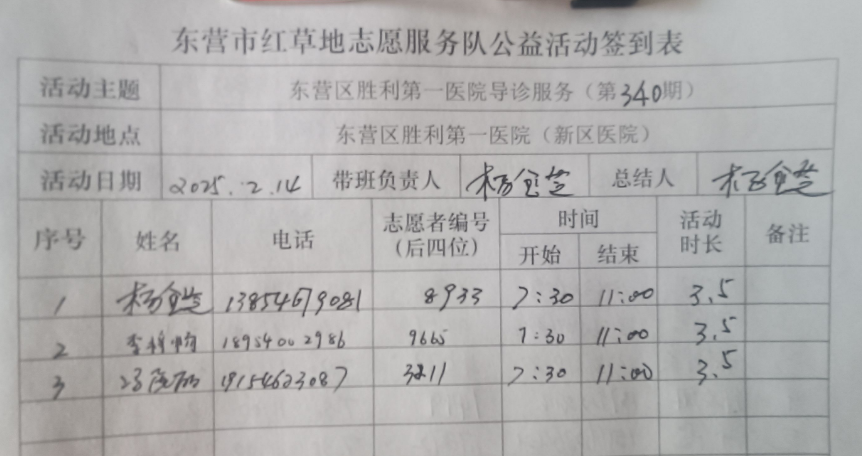 东营市红草地志愿服务队公益活动签到表
活动主题 东营区胜利第一医院导诊服务（第340期）
活动地点 东营区胜利第一医院（新区医院）
活动日期 2025.2.14 带班负责人 杨金芝 总结人 杨金芝
序号 姓名 电话 志愿者编号（后四位） 时间 开始 结束 活动时长 备注
1 杨金芝 13854679081 8933 7:30 11:00 3.5
2 李 18954002986 9665 7:30 11:00 3.5
3 冯 19154623087 3211 7:30 11:00 3.5